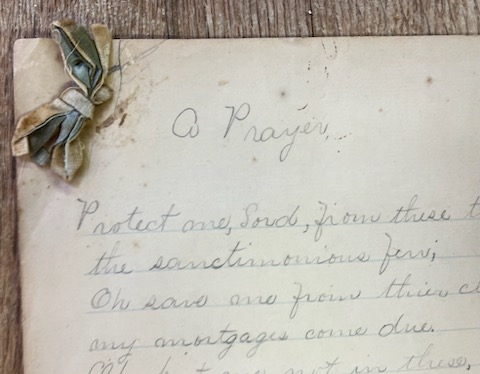 A Prayer.
Protect me, Lord, from these
the sanctimonious few;
Oh save me from their
my mortgages come due.
not in these,